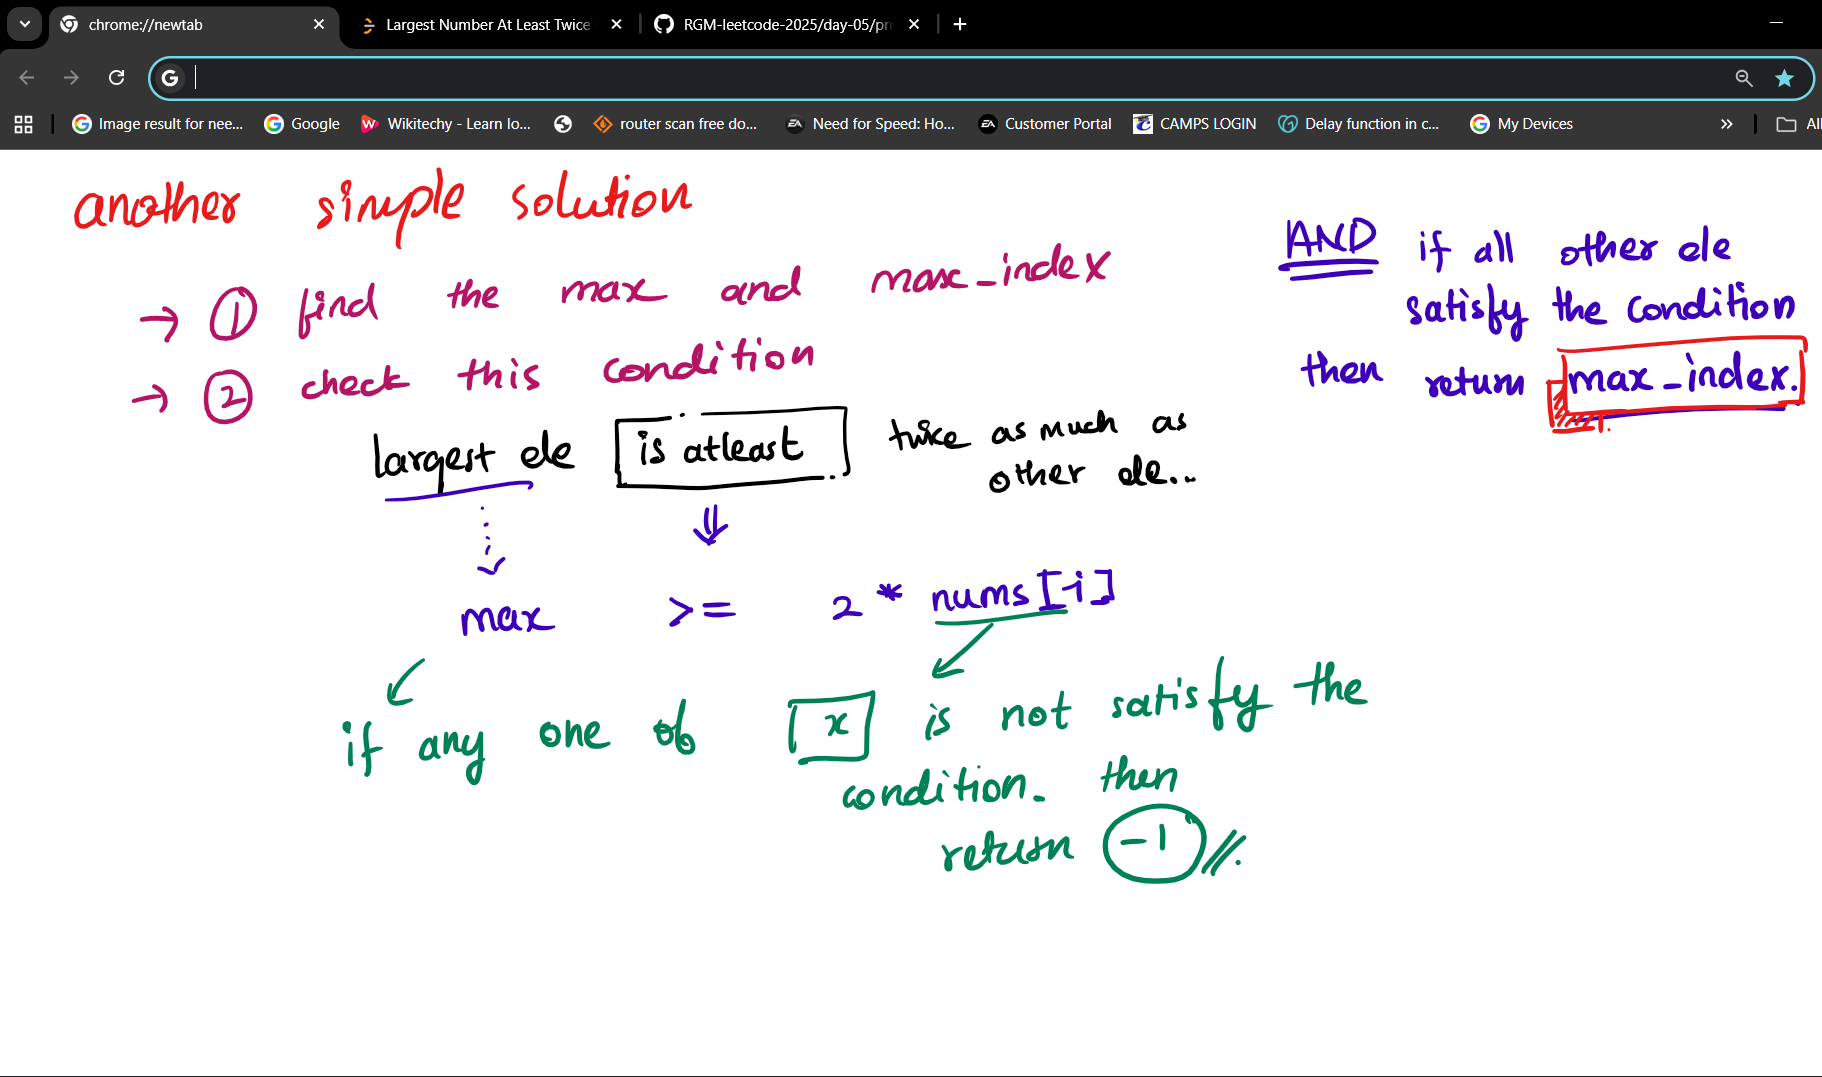 chrome://newtab
Largest Number At Least Twice
RGM-leetcode-2025/day-05/pr
Image result for nee...
Google
Wikitechy - Learn lo...
router scan free do...
Need for Speed: Ho...
Customer Portal
CAMPS LOGIN
Delay function in c...
My Devices
All
another simple solution
→ ① find the max and max_index
→ ② check this condition
largest ele is atleast twice as much as
other ele...
max >= 2 * nums[i]
if any one of x is not satisfy the
condition. then
return -1
AND if all other ele
satisfy the condition
then return max_index.